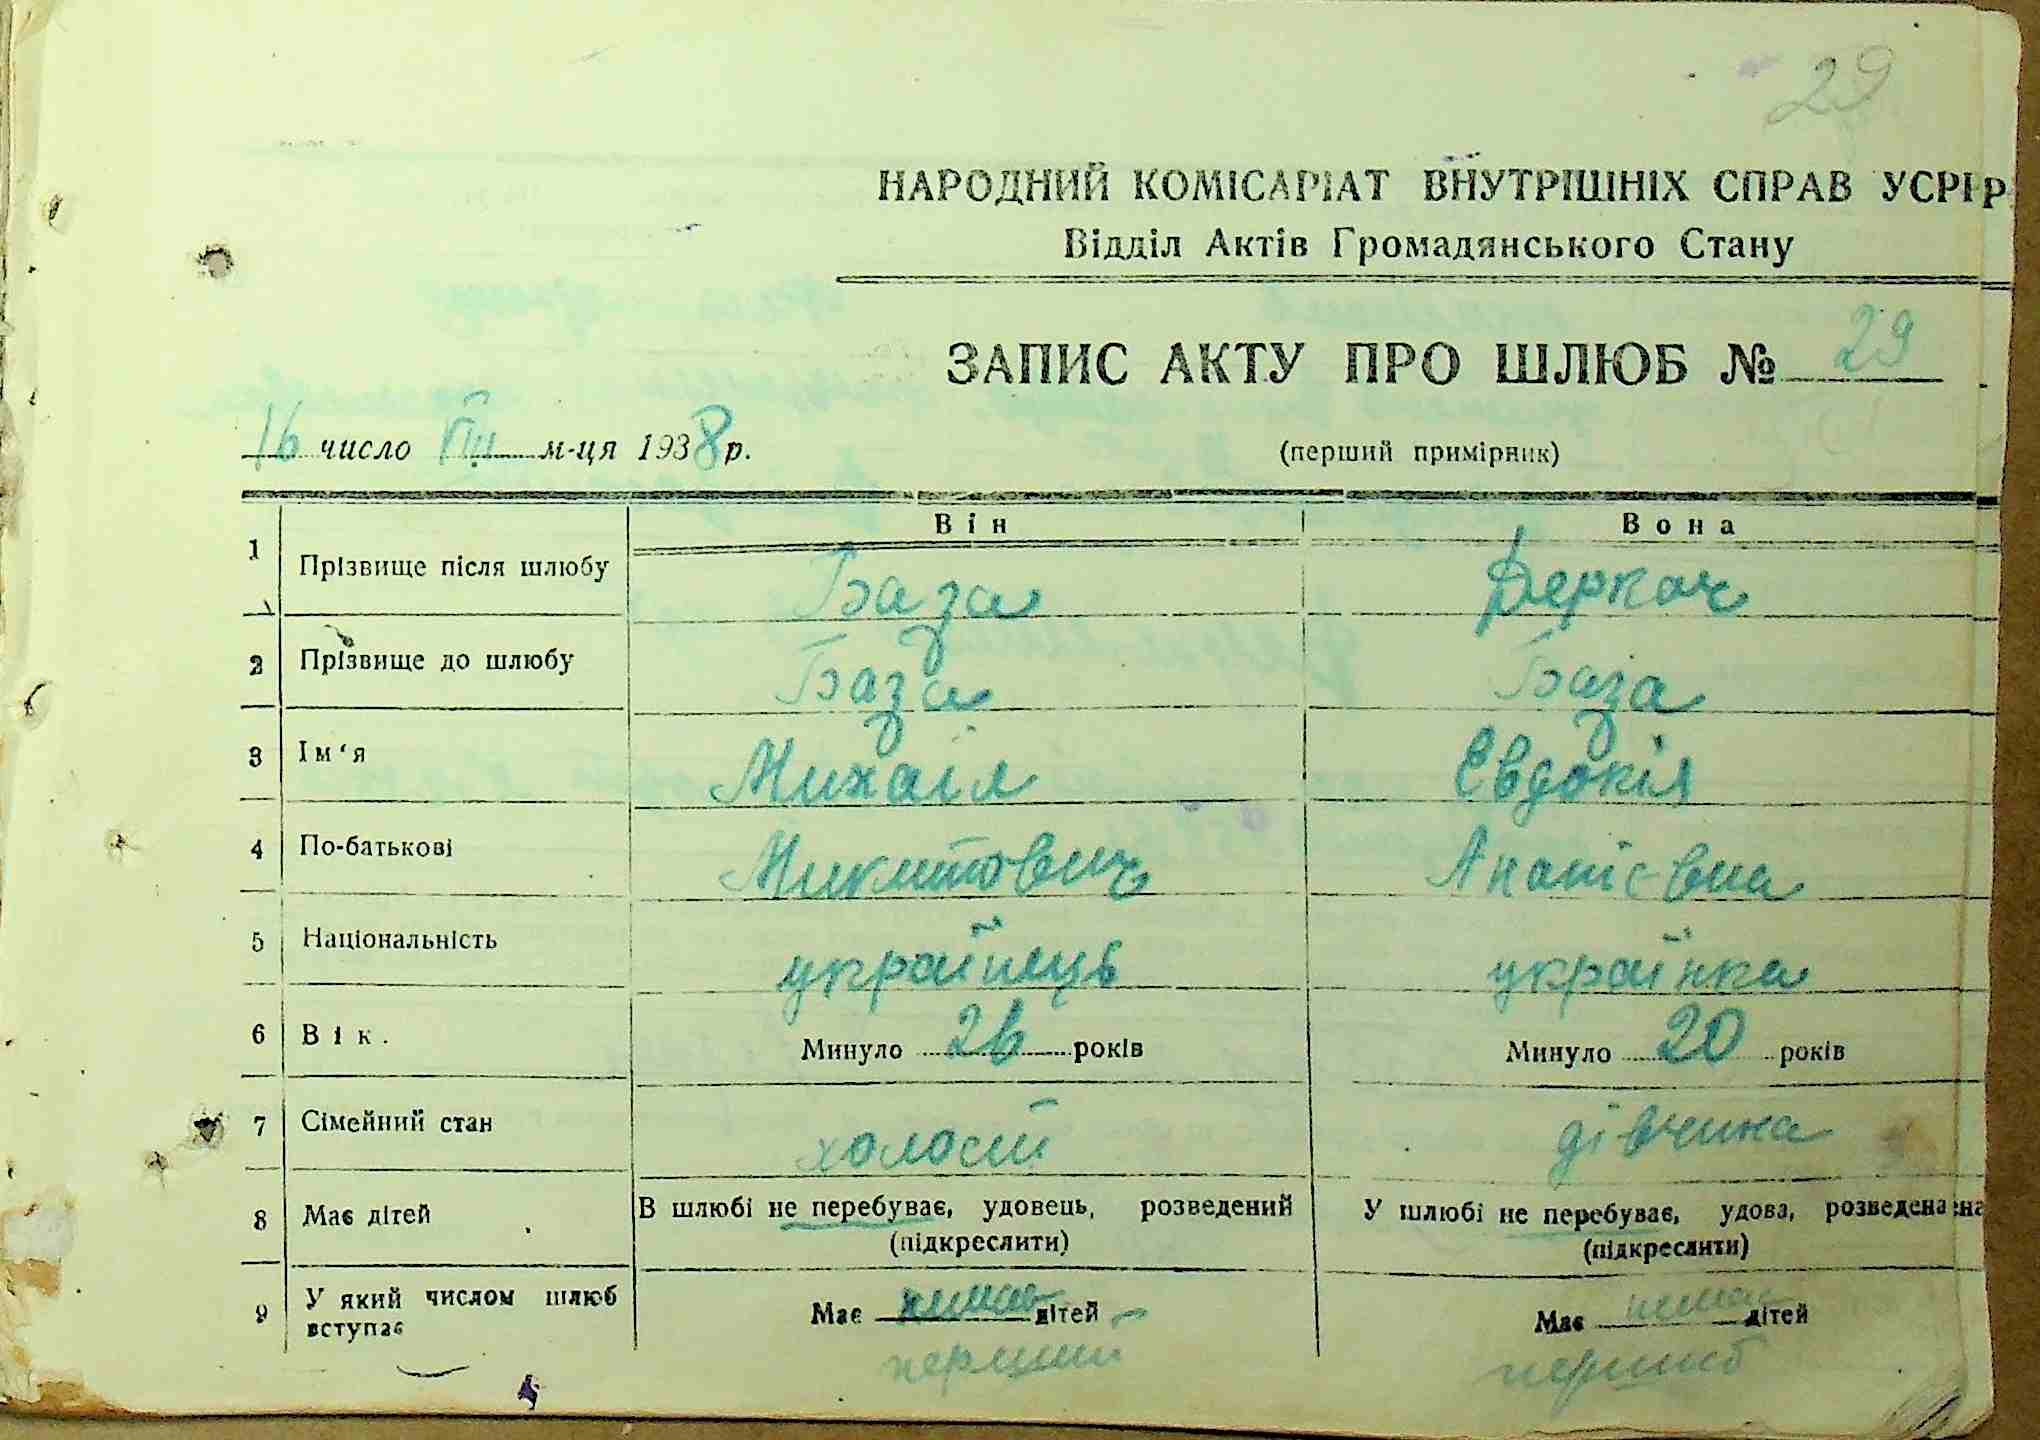 29
НАРОДНИЙ КОМІСАРІАТ ВНУТРІШНІХ СПРАВ УСРР
Відділ Актів Громадянського Стану
ЗАПИС АКТУ ПРО ШЛЮБ № 29
16 число VIII м-ця 1938 р. (перший примірник)
Він Вона
1 Прізвище після шлюбу База Деркач
2 Прізвище до шлюбу База База
3 Ім'я Михаіл Євдокія
4 По-батькові Микитович Анатієвна
5 Національність українець українка
6 Вік. Минуло 26 років Минуло 20 років
7 Сімейний стан холостй дівчина
8 Має дітей В шлюбі не перебуває, удовець, розведений У шлюбі не перебуває, удова, розведена
(підкреслити) (підкреслити)
9 У який числом шлюб вступає Має немає дітей Має немає дітей
перший